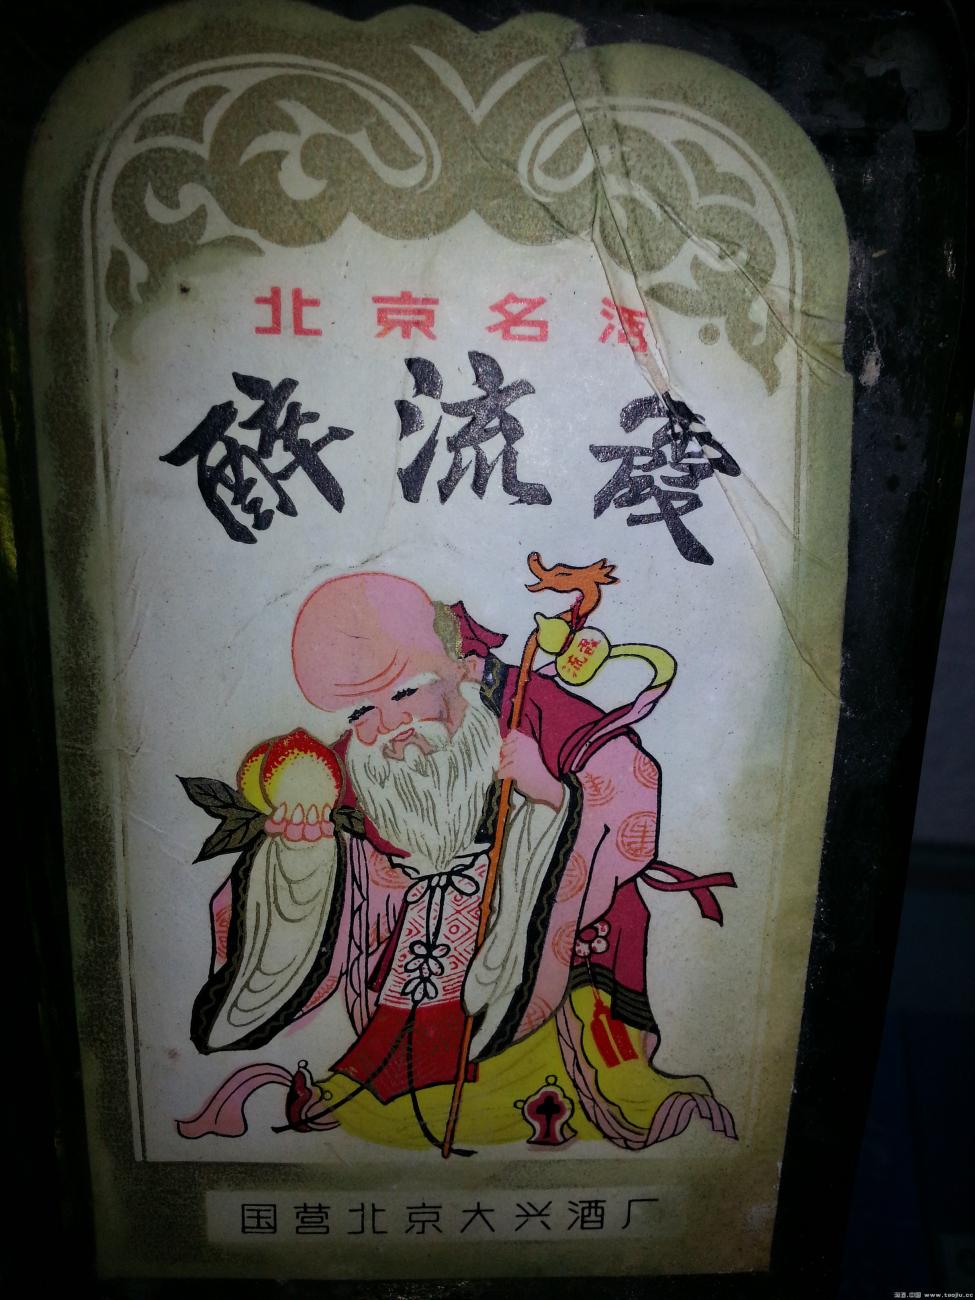 北京名酒
醉流霞
流霞
国营北京大兴酒厂
www.taojiu.cc